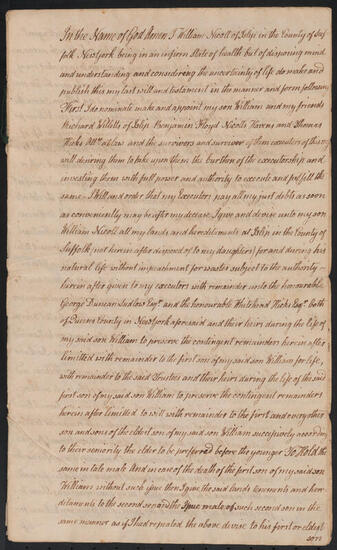 In the Name of God Amen I William Nicoll of Islip in the County of Suf-
folk Newyork being in an infirm State of health but of disposing mind
and understanding and considering the uncertainty of life do make and
publish this my last will and testament in the manner and form following
First I do nominate make and appoint my son William and my friends
Richard Willits of Islip Benjamin Floyd Nicolls Havens and Thomas
Hicks Attʸ at law and the survivors and survivor of them executors of this my
will desiring them to take upon them the burthen of the executorship and
investing them with full power and authority to execute and fulfill the
same. I will and order that my Executors pay all my just debts as soon
as conveniently may be after my decease. I give and devise unto my son
William Nicoll all my lands and hereditaments at Islip in the County of
Suffolk (not herein after disposed of to my daughters) for and during his
natural life without impeachment for waste subject to the authority
herein after given to my executors with remainder unto the honourable
George Duncan Ludlow Esqʳ and the honourable Whitehead Hicks Esqʳ both
of Queens County in Newyork aforesaid and their heirs during the life of
my said son William to preserve the contingent remainders herein after
limitted with remainder to the first son of my said son William for life,
with remainder to the said Trustees and their heirs during the life of the said
first son of my said son William to preserve the contingent remainders
herein after limitted to wit with remainder to the first and every other
son and sons of the eldest son of my said son William successively according
to their seniority the elder to be preferred before the younger To Hold the
same in tale male And in case of the death of the first son of my said son
William without such issue then I give the said lands tenements and here-
ditaments to the second son and the Issue male of such second son in the
same manner as if I had repeated the above devise to his first or eldest
son